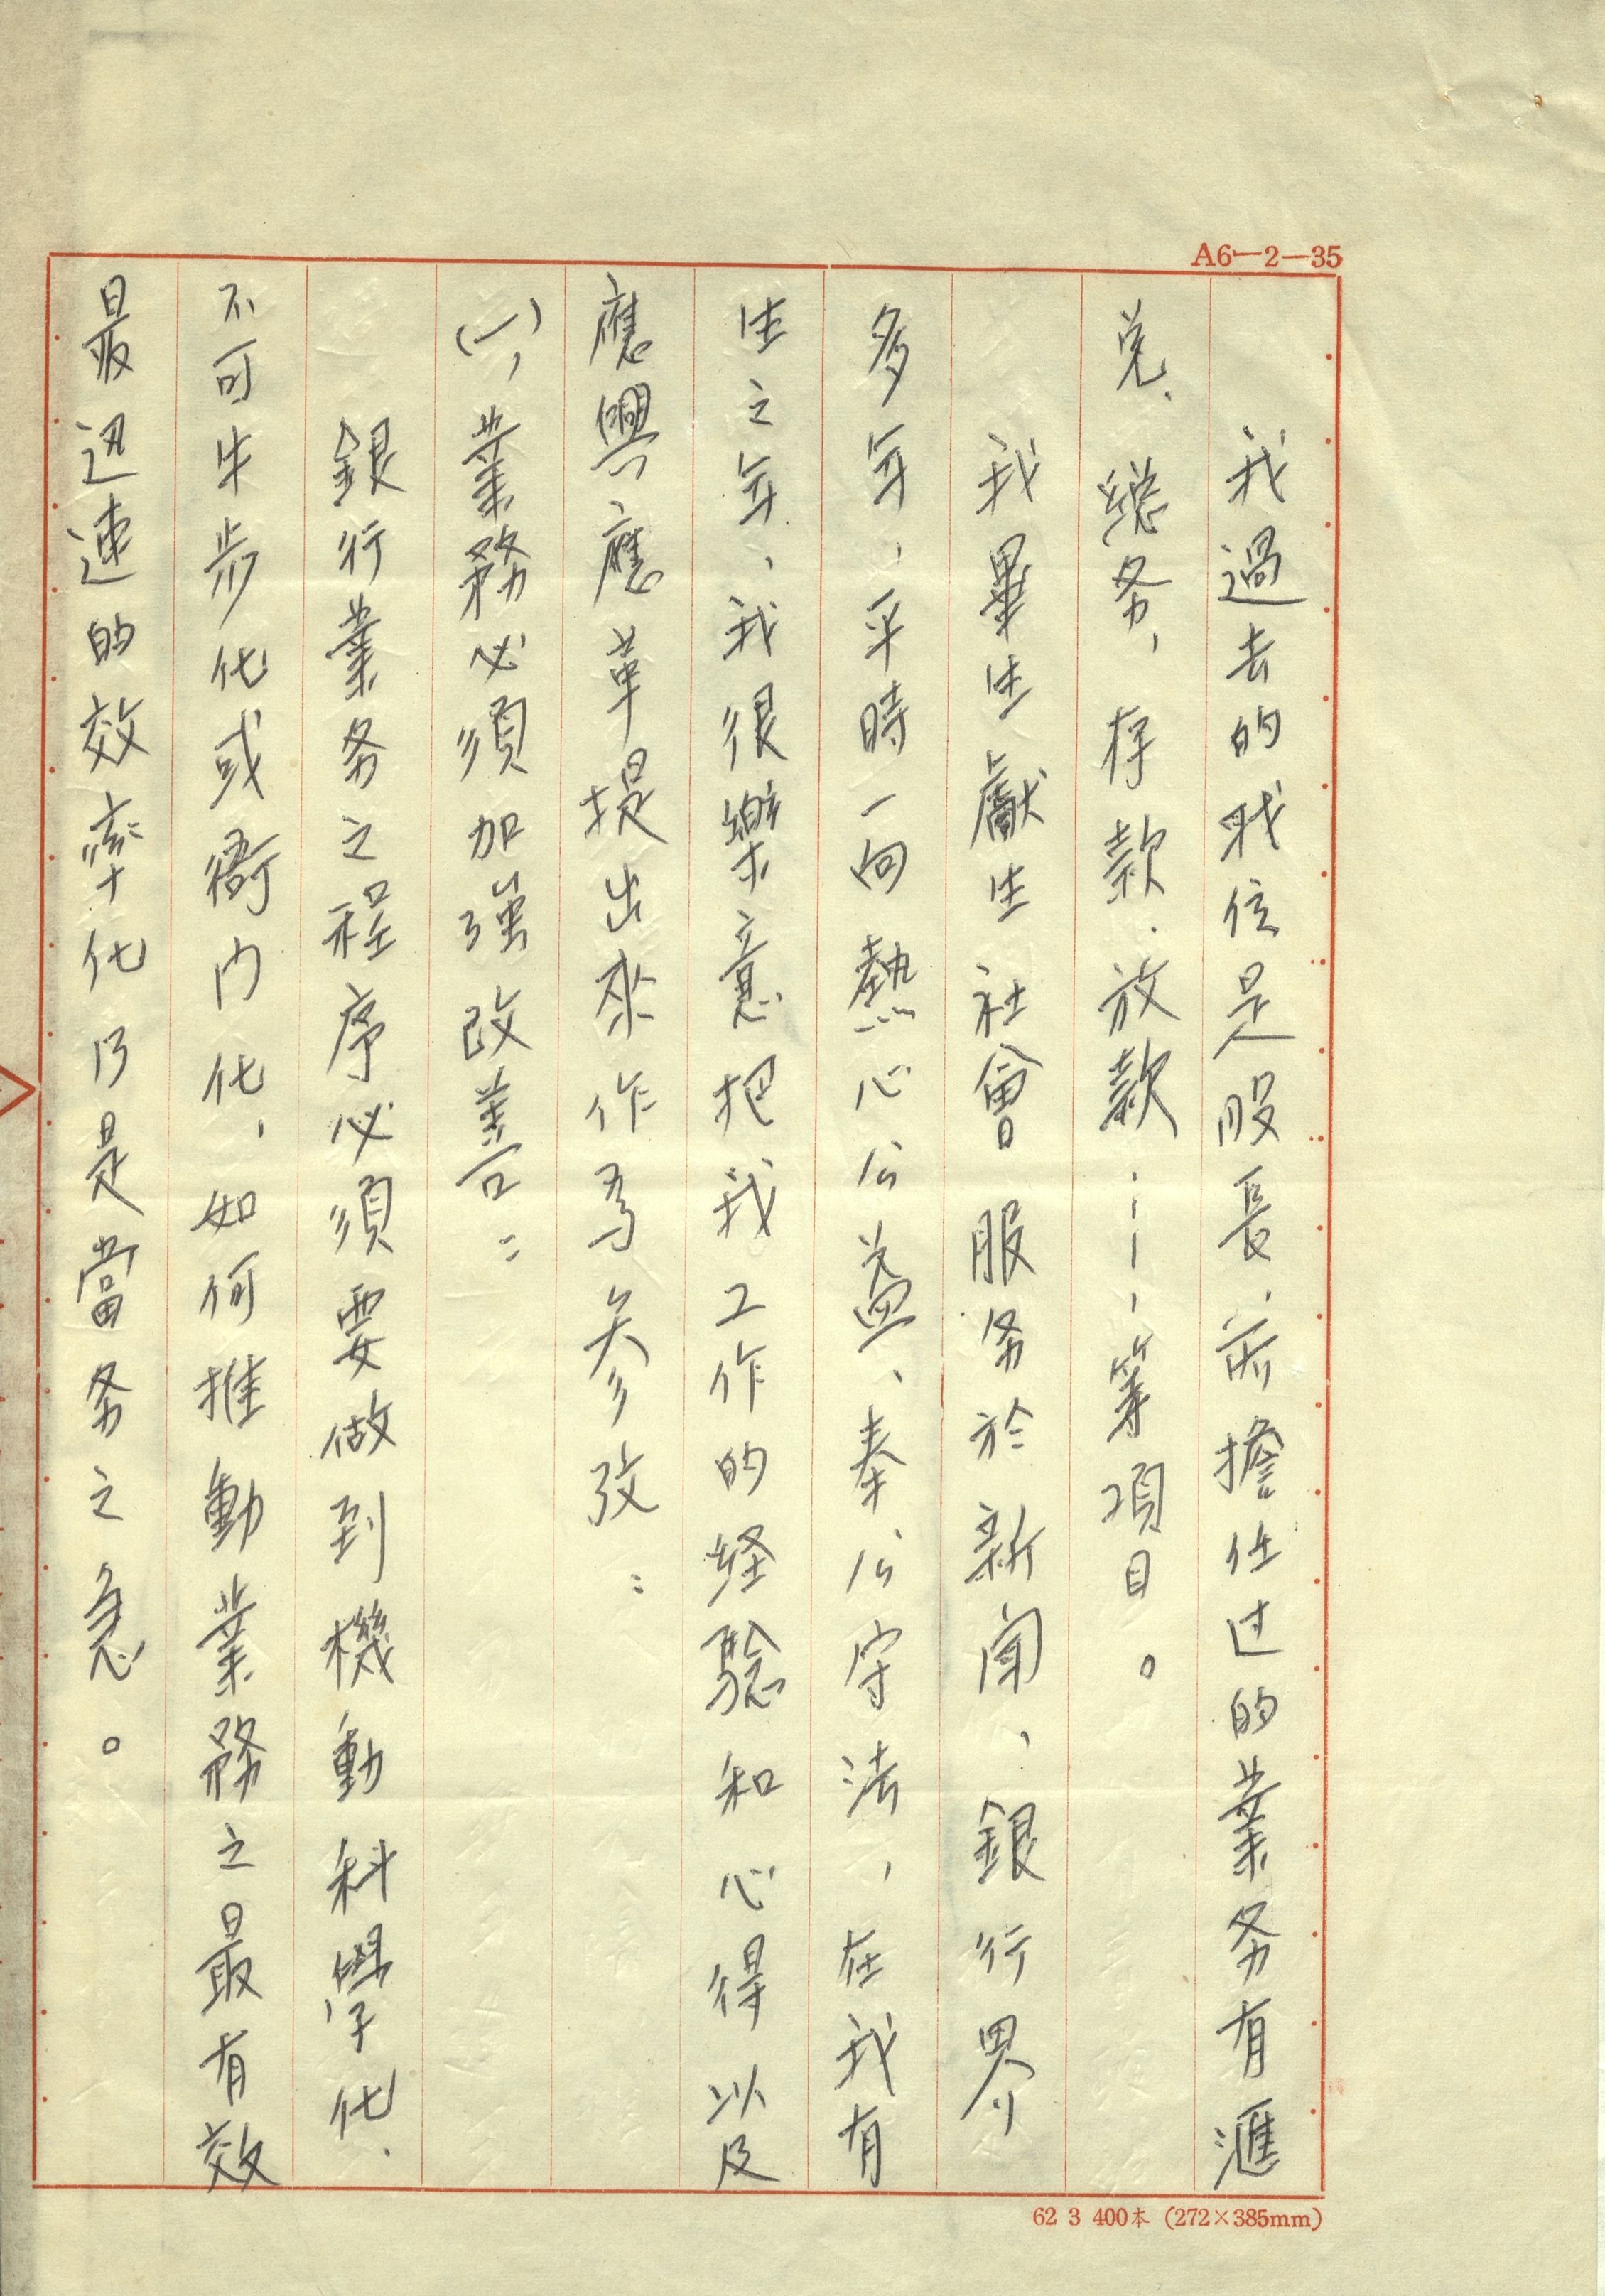 A6-2-35
我過去的戝位是股長，所擔任过的業务有滙
兌、總务，存款．放款……等項目。
我畢生獻生社會服务於新聞，銀行界
多年，平時一向熱心公益、奉公守法，在我有
生之年，我很樂意把我工作的経驗和心得以及
應興應革提出來作為參攷：
(一)，業務必須加強改善：
銀行業务之程序必須要做到機動科學化．
不可牛步化或衙門化，如何推動業務之最有效
最迅速的效率化乃是當务之急。
62 3 400本 (272×385mm)